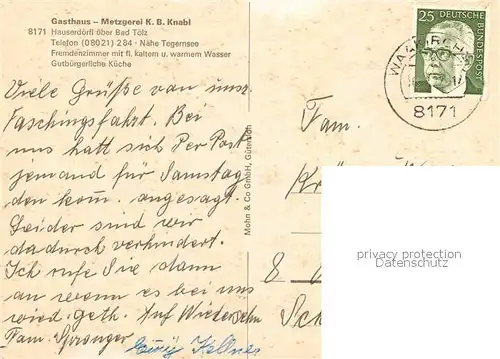 Gasthaus – Metzgerei K. B. Knabl
8171 Hauserdörfl über Bad Tölz
Telefon (08021) 284 · Nähe Tegernsee
Fremdenzimmer mit fl. kaltem u. warmem Wasser
Gutbürgerliche Küche
Viele Grüße von unsr.
Faschingsfahrt. Bei
uns hatt sich Per Post
jemand für Samstag
den kom. angesagt.
Leider sind wir
dadurch verhindert.
Ich rufe Sie dann
an wenn es bei uns
wied. geth. Auf Wiedersehn
Fam. Spranger
Kellner
Mohn & Co GmbH, Gütersloh
25 DEUTSCHE BUNDESPOST
WAAKIRCHEN
8171
Fam.
8
Sch
privacy protection
Datenschutz